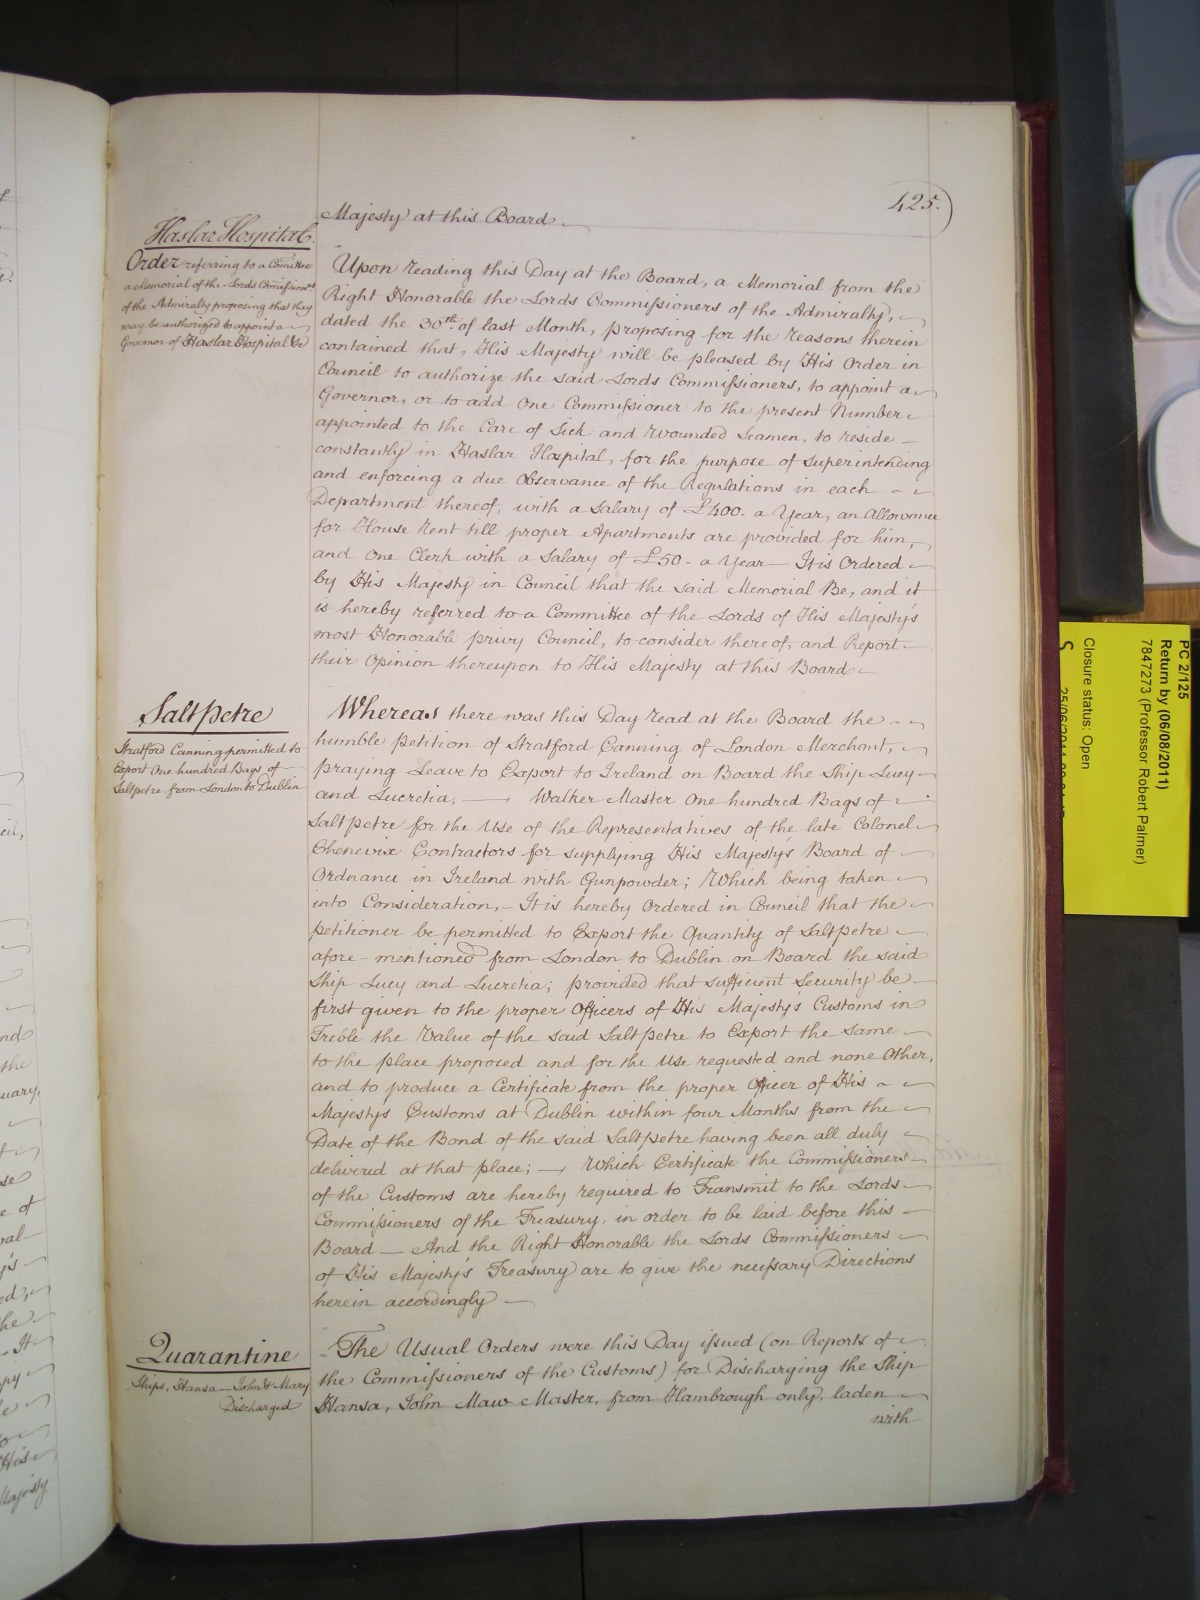 425.
Majesty at this Board.
Haslar Hospital.
Order referring to a Comittee
a Memorial of the Lords Comissionrs
of the Admiralty proposing that they
may be authorized to appoint a
Governor of Haslar Hospital &c
Upon reading this Day at the Board, a Memorial from the
Right Honorable the Lords Commissioners of the Admiralty,
dated the 30th of last Month, proposing for the reasons therein
contained that, His Majesty will be pleased by His Order in
Council to authorize the said Lords Commissioners, to appoint a
Governor, or to add One Commissioner to the present Number
appointed to the Care of Sick and Wounded Seamen, to reside
constantly in Haslar Hospital, for the purpose of superintending
and enforcing a due Observance of the Regulations in each
Department thereof, with a Salary of £400. a Year, an Allowance
for House Rent till proper Apartments are provided for him,
and one Clerk with a Salary of £50. a Year — It is Ordered
by His Majesty in Council that the said Memorial Be, and it
is hereby referred to a Committee of the Lords of His Majesty's
most Honorable privy Council, to consider thereof, and Report
their Opinion thereupon to His Majesty at this Board
Saltpetre
Stratford Canning permitted to
Export One hundred Bags of
Saltpetre from London to Dublin
Whereas there was this Day read at the Board the
humble Petition of Stratford Canning of London Merchant,
praying Leave to Export to Ireland on Board the Ship Lucy
and Lucretia, — Walker Master One hundred Bags of
Saltpetre for the Use of the Representatives of the late Colonel
Chenevix Contractors for supplying His Majesty's Board of
Ordnance in Ireland with Gunpowder; Which being taken
into Consideration, — It is hereby Ordered in Council that the
petitioner be permitted to Export the Quantity of Saltpetre
afore-mentioned from London to Dublin on Board the said
Ship Lucy and Lucretia; provided that sufficient Security be
first given to the proper Officers of His Majesty's Customs in
Treble the Value of the said Saltpetre to Export the same
to the place proposed and for the Use requested and none Other,
and to produce a Certificate from the proper Officer of His
Majestys Customs at Dublin within four Months from the
Date of the Bond of the said Saltpetre having been all duly
delivered at that place; — Which Certificate the Commissioners
of the Customs are hereby required to Transmit to the Lords
Commissioners of the Treasury, in order to be laid before this
Board — And the Right Honorable the Lords Commissioners
of His Majesty's Treasury are to give the necessary Directions
herein accordingly —
Quarantine
Ships, Hansa — John & Mary
Discharged
The Usual Orders were this Day issued (on Reports of
the Commissioners of the Customs) for Discharging the Ship
Hansa, John Maw Master, from Hambrough only, laden
with
PC 2/125
Return by (06/08/2011)
7847273 (Professor Robert Palmer)
Closure status: Open